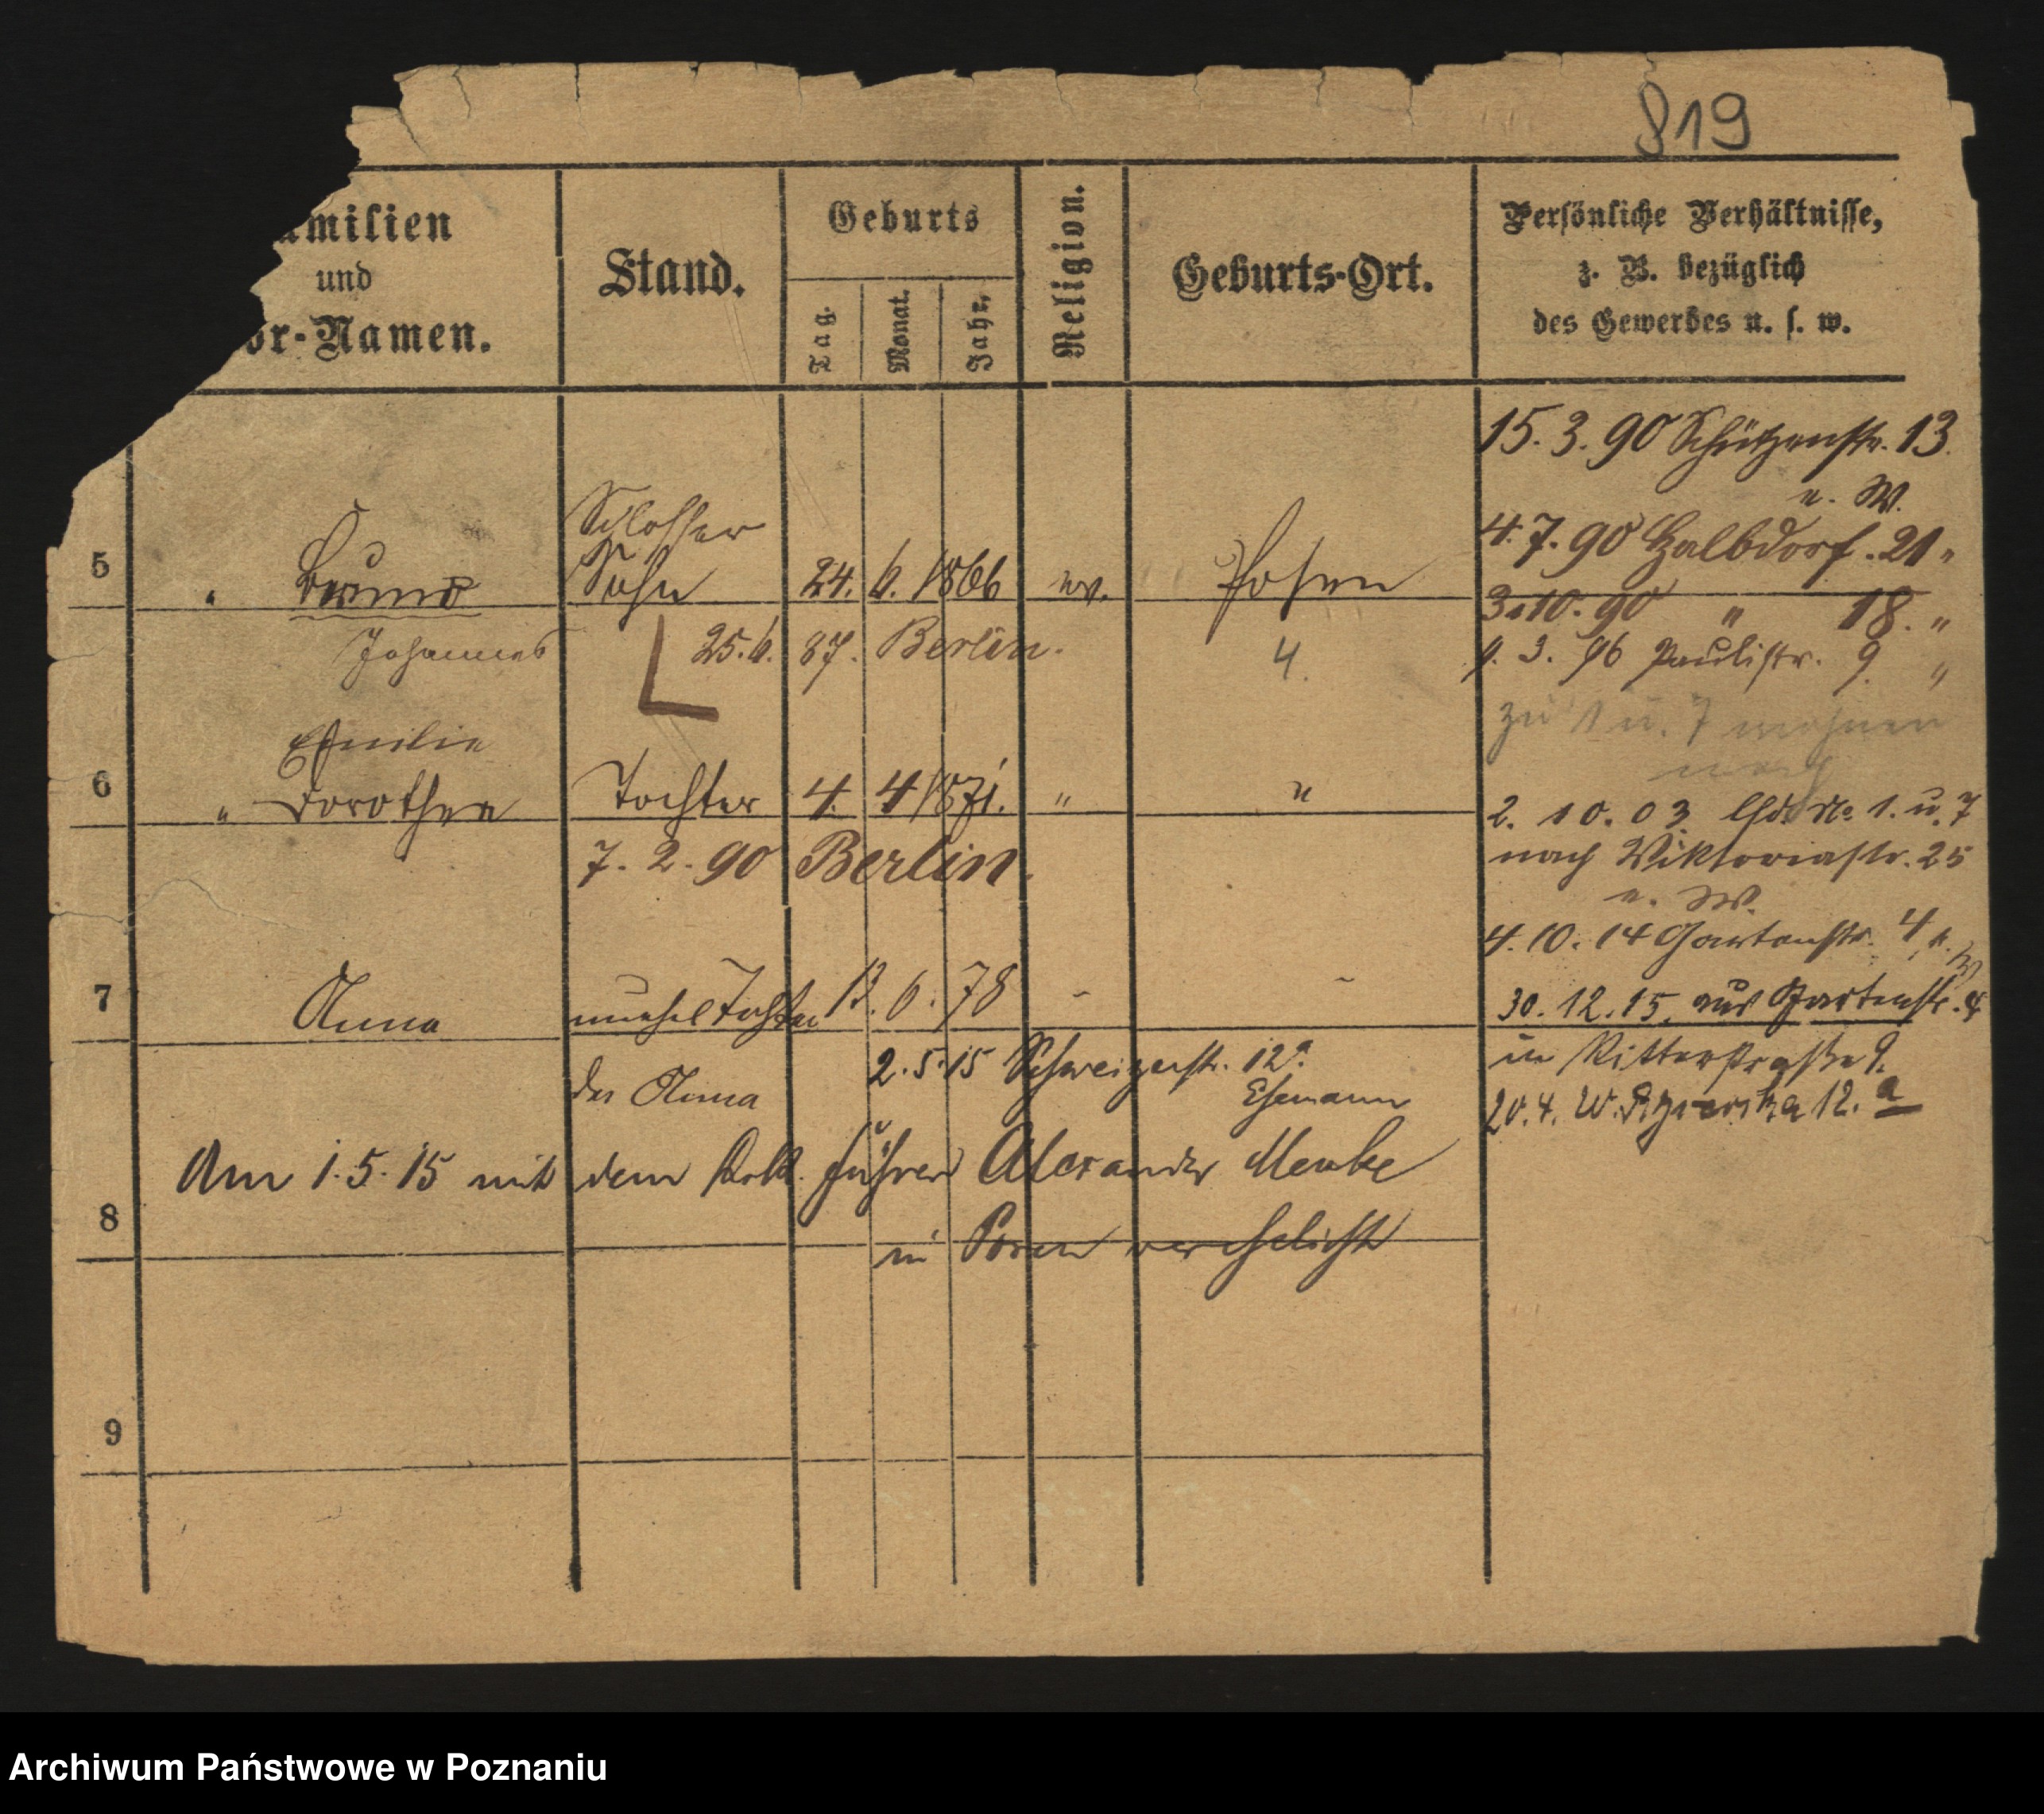 819
milien
und
or-Namen.
Stand.
Geburts
Tag.
Monat.
Jahr.
Religion.
Geburts-Ort.
Persönliche Verhältnisse,
z. B. bezüglich
des Gewerbes u. s. w.
15. 3. 90 Schützenstr. 13.
u. W.
4. 7. 90 Halbdorf. 21 "
3. 10. 90 " 18. "
9. 3. 96 Paulistr. 9. "
zu 1 u. 7 wohnen
noch
2. 10. 03 lfd. No. 1. u. 7
nach Viktoriastr. 25
u. W.
4. 10. 14 Gartenstr. 4, u. W
30. 12. 15. aus Gartenstr. 4
in Ritterstraße 9.
20. 4. W. 12. a
5
" Bruno
Schlosser
Sohn
24. 6. 1866
ev.
Posen
Johannes
25. 6. 87. Berlin.
4.
6
Emilie
" Dorothea
Tochter
4. 4 1871.
"
"
7. 2. 90 Berlin.
7
Anna
unehel Tochter
der Anna
13. 6. 78
-
-
2. 5. 15 Schweizerstr. 12a.
Ehemann
8
Am 1. 5. 15 mit dem führer Alexander Menke
in Posen verehelicht
9
Archiwum Państwowe w Poznaniu